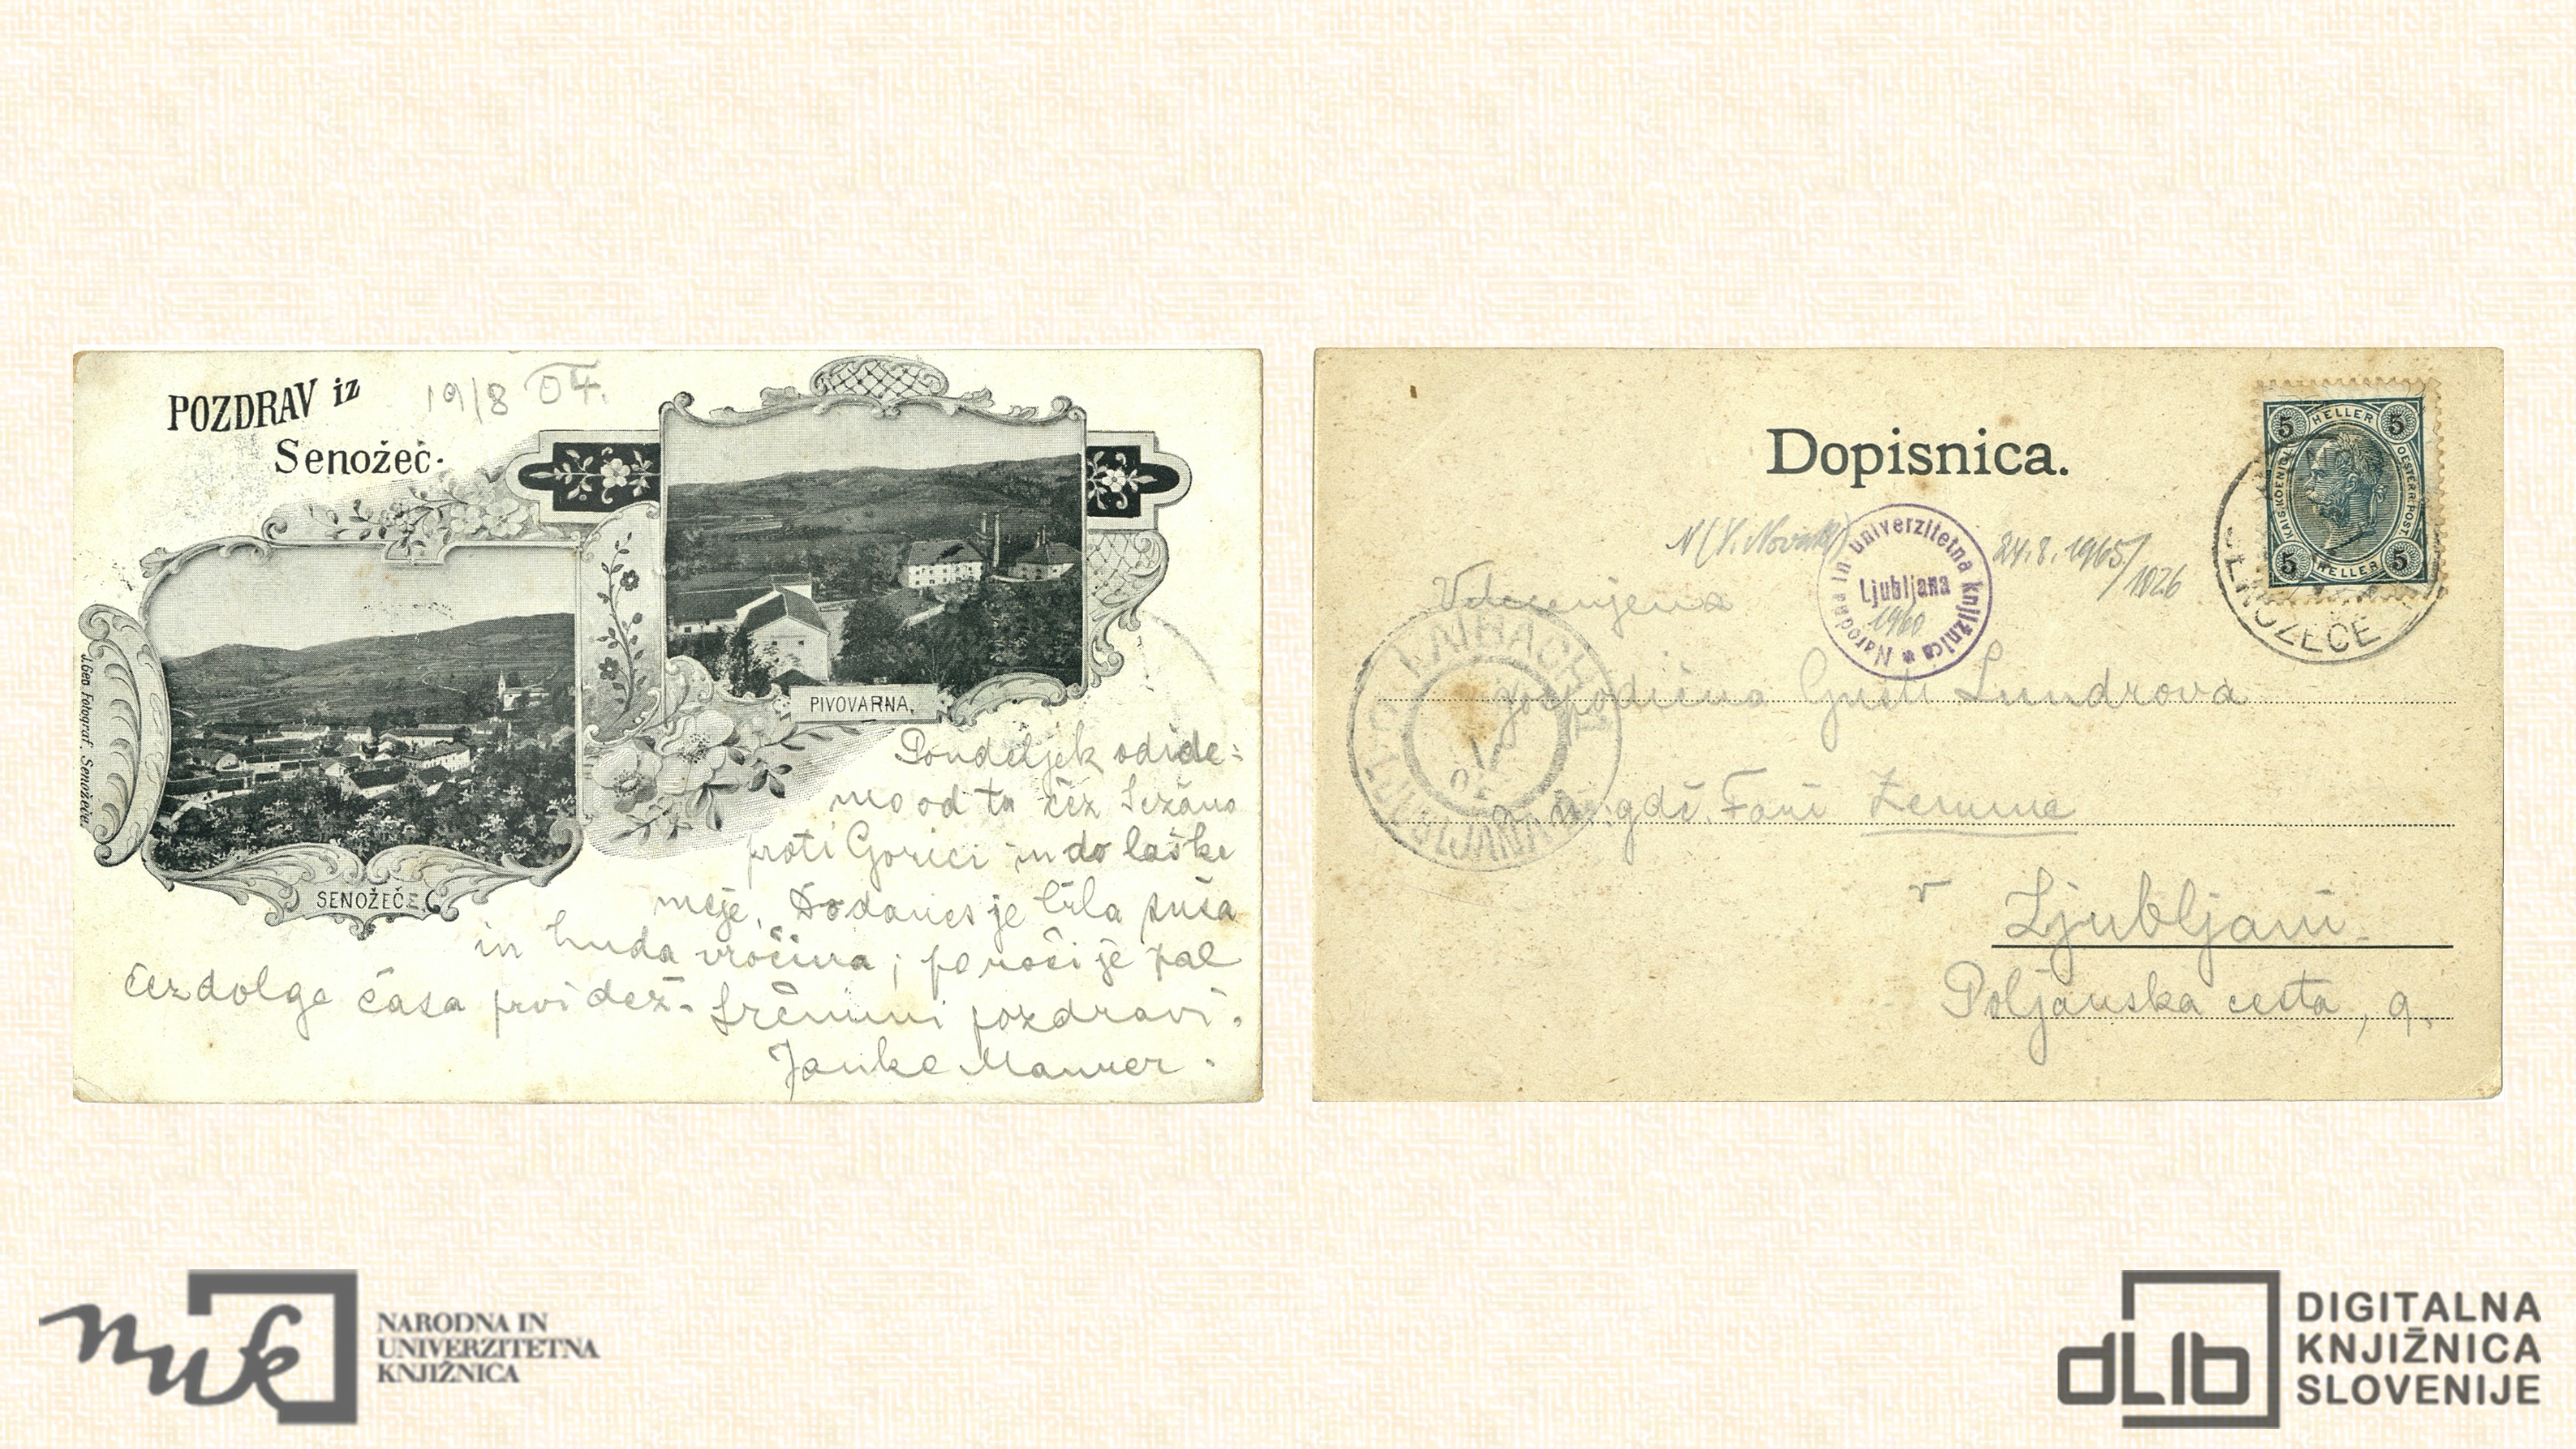 POZDRAV iz
Senožeč.
19/8 04.
J. Geo Fotograf, Senožeče.
PIVOVARNA.
SENOŽEČE.
Pondeljek odide-
mo od tu čez Sežano
proti Gorici in do laške
meje. Dodanes je bila suša
in huda vročina; ponoči je pal
čez dolge časa prvi dež. Srčnimi pozdravi.
Janko Maurer.
Dopisnica.
N (V. Novak) 24.8.1965/
1026
Narodna in univerzitetna knjižnica
Ljubljana
1960
5 HELLER 5
KAIS. KOENIGL. OESTERR. POST
5 HELLER 5
SENOŽEČE
LAIBACH
LJUBLJANA
gospodična Gusti
gdč. Fani
v Ljubljani
Poljanska cesta, 9.
nuk
NARODNA IN
UNIVERZITETNA
KNJIŽNICA
dLib
DIGITALNA
KNJIŽNICA
SLOVENIJE